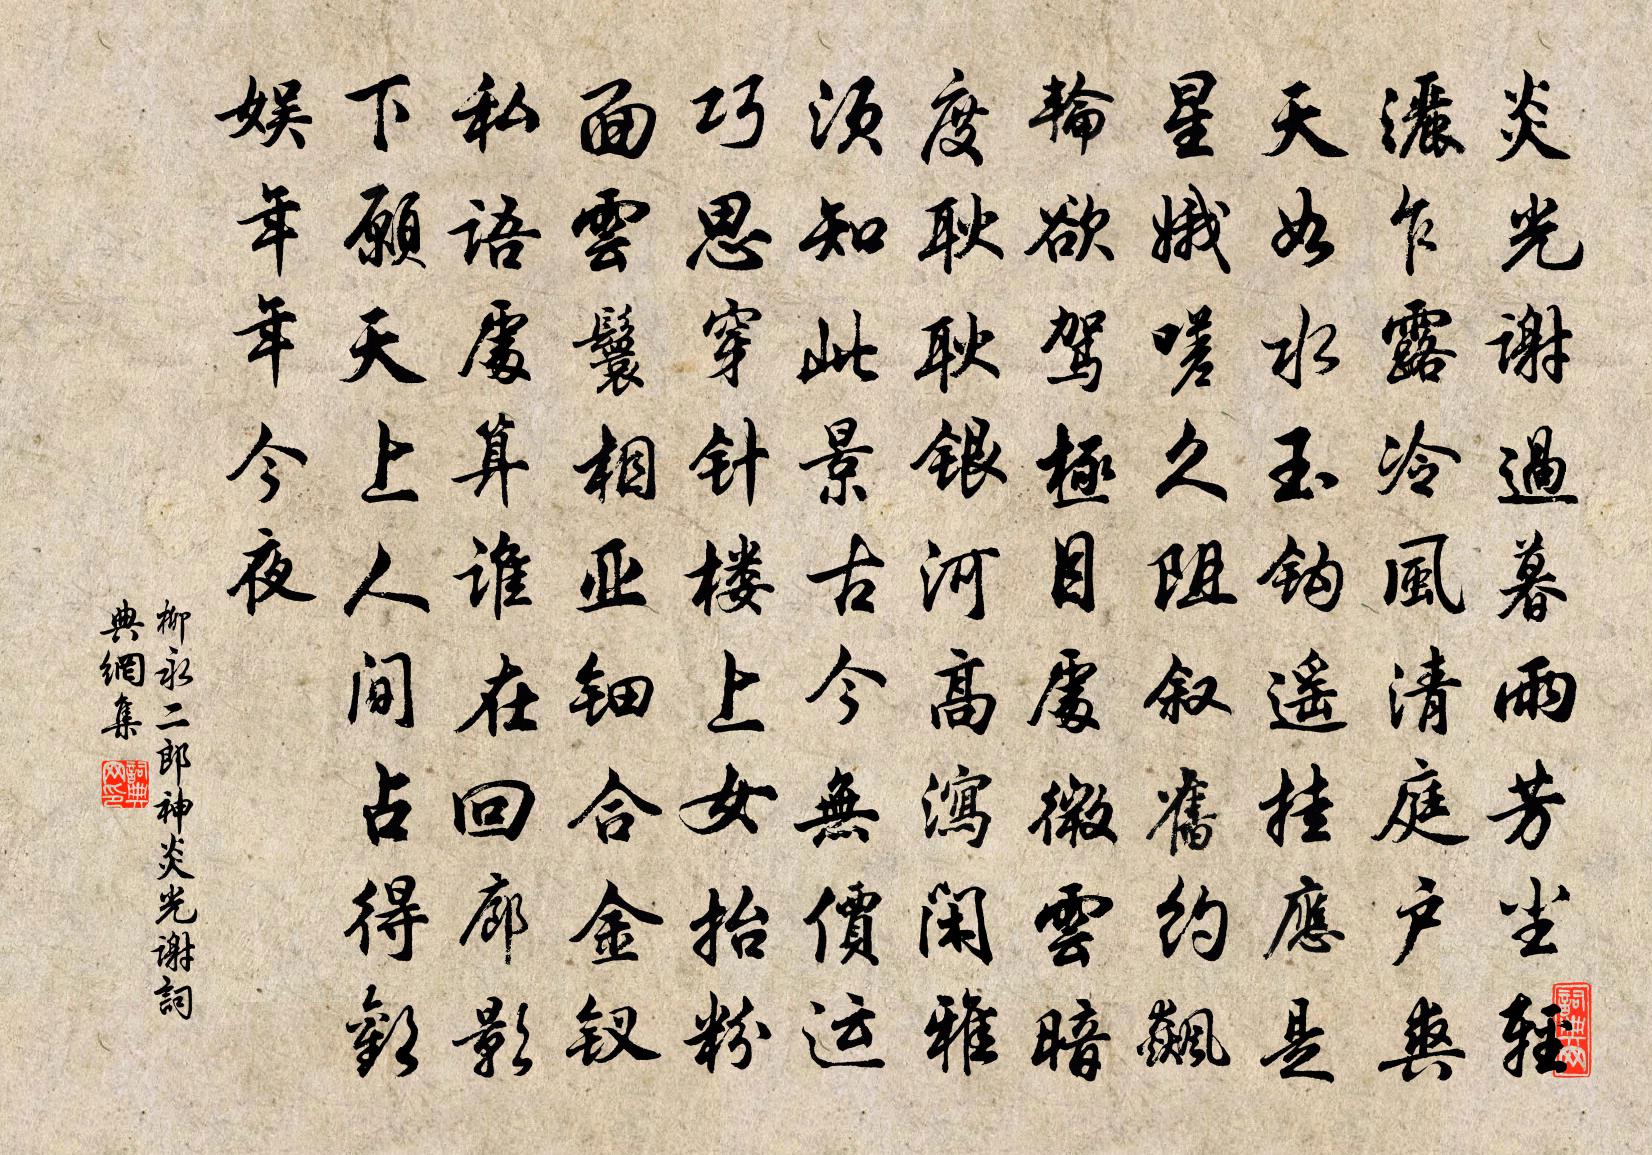 炎光谢過暮雨芳尘輕
灑乍露冷風清庭户爽
天如水玉鈎遥挂應是
星娥嗟久阻叙舊约飆
輪欲駕極目處微雲暗
度耿耿银河高瀉闲雅
须知此景古今無價运
巧思穿针楼上女抬粉
面雲鬟相亚钿合金钗
私語處算谁在回廊影
下願天上人间占得歡
娱年年今夜
柳永二郎神炎光谢詞
典網集
詞典网
詞典网印